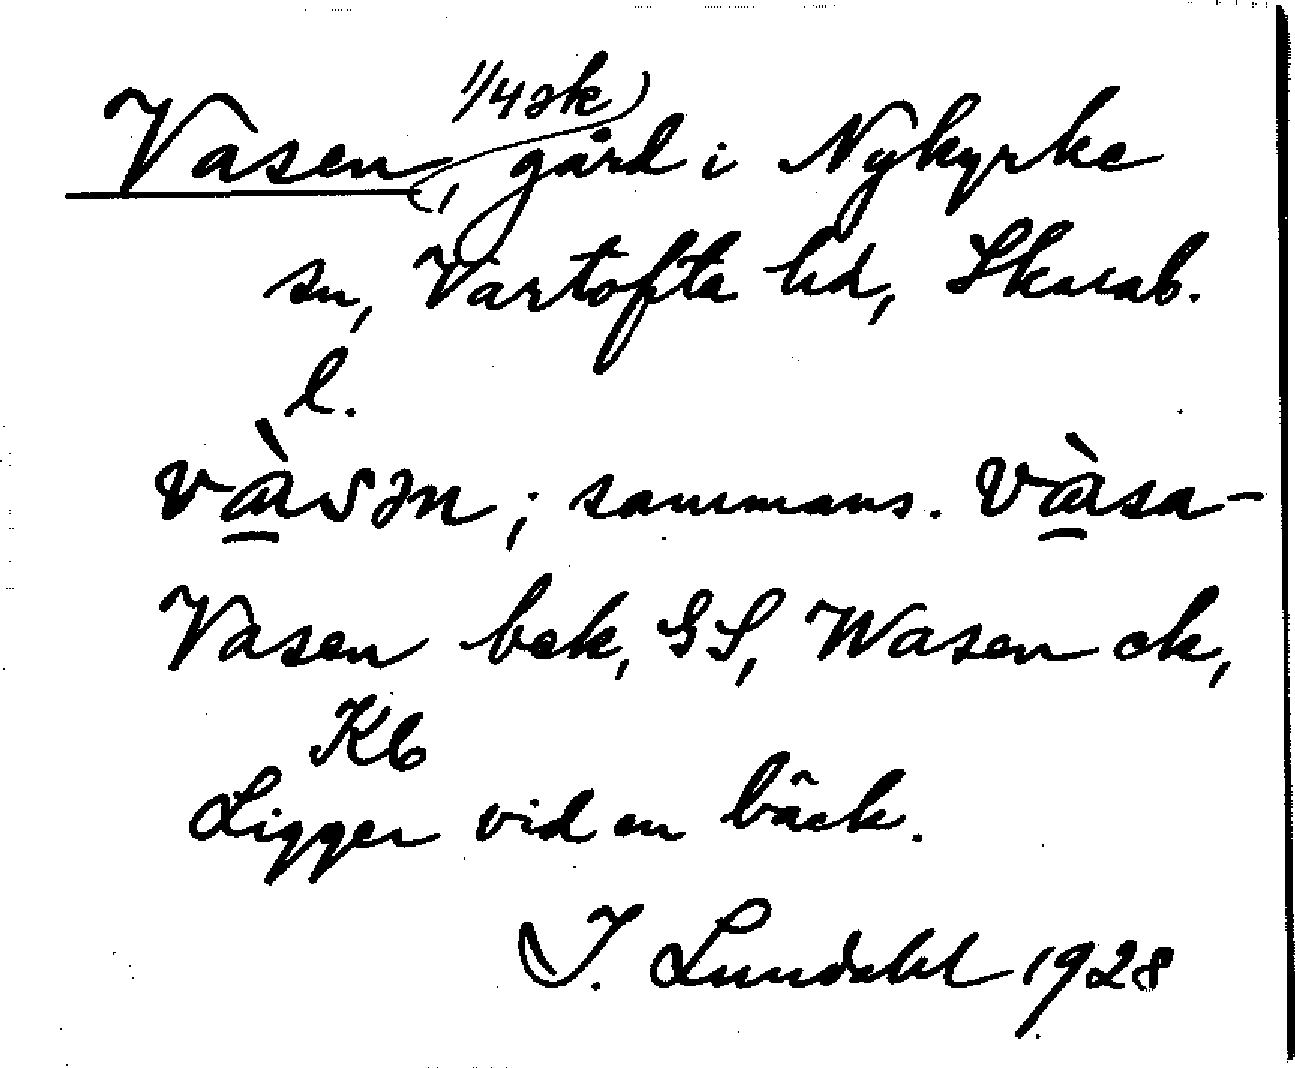 1/4 sk
Vasen, gård i Nykyrke
sn, Vartofta hd, Skarab.
l.
vàsən; sammans. vàsa-
Vasen bek, GS, Wasen ek,
Kb
Ligger vid en bäck.
I. Lundahl 1928